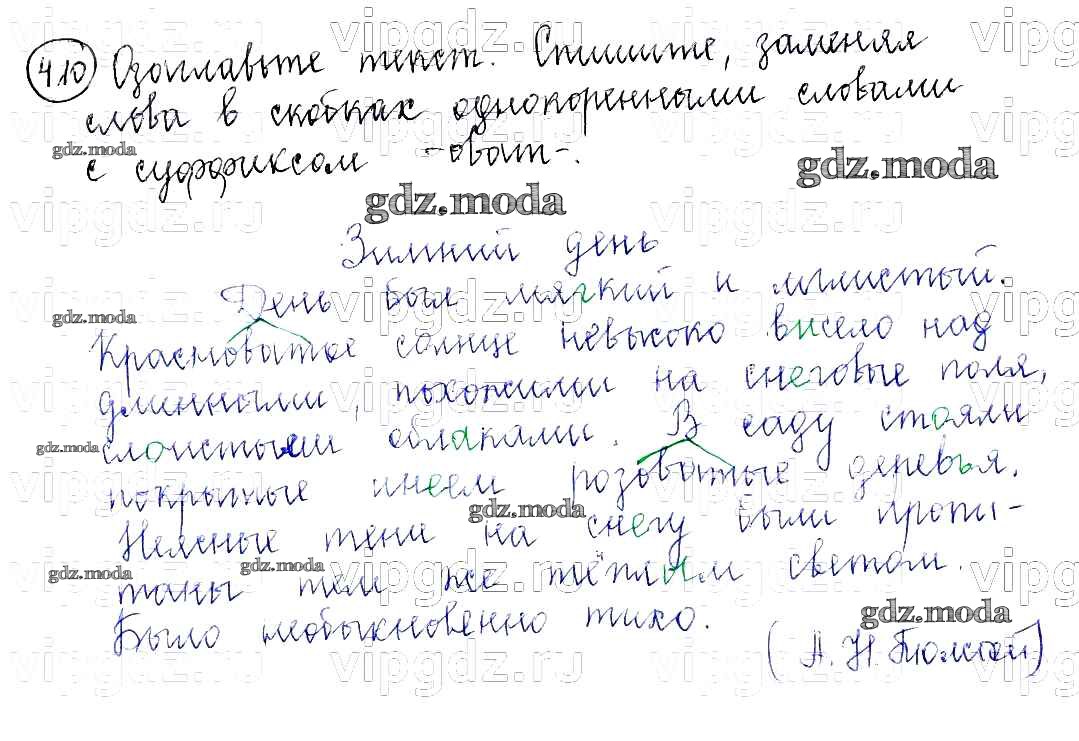 410 Озаглавьте текст. Спишите, заменяя
слова в скобках однокоренными словами
с суффиксом -оват-.
Зимний день
День был мягкий и мглистый.
Красноватое солнце невысоко висело над
длинными, похожими на снеговые поля,
слоистыми облаками. В саду стояли
покрытые инеем розоватые деревья.
Неясные тени на снегу были пропи-
таны тем же тёплым светом.
Было необыкновенно тихо.
(А. Н. Толстой)
gdz.moda
gdz.moda
gdz.moda
gdz.moda
gdz.moda
gdz.moda
gdz.moda
gdz.moda
gdz.moda
vipgdz.ru